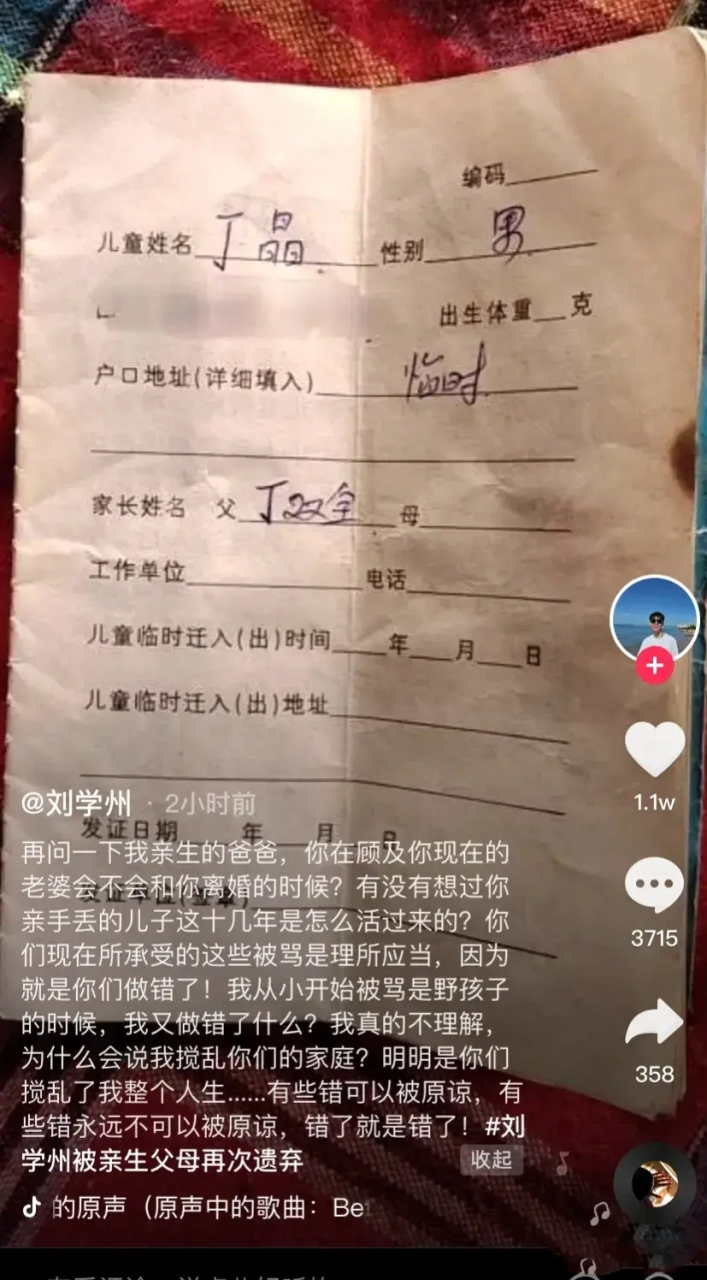 编码
儿童姓名 丁晶 性别 男
出生体重 克
户口地址(详细填入) 临时
家长姓名 父 丁双全 母
工作单位 电话
儿童临时迁入(出)时间 年 月 日
儿童临时迁入(出)地址
发证日期 年 月 日
发证单位(签章)
1.1w
3715
358
@刘学州 · 2小时前
再问一下我亲生的爸爸，你在顾及你现在的
老婆会不会和你离婚的时候？有没有想过你
亲手丢的儿子这十几年是怎么活过来的？你
们现在所承受的这些被骂是理所应当，因为
就是你们做错了！我从小开始被骂是野孩子
的时候，我又做错了什么？我真的不理解，
为什么会说我搅乱你们的家庭？明明是你们
搅乱了我整个人生......有些错可以被原谅，有
些错永远不可以被原谅，错了就是错了！#刘
学州被亲生父母再次遗弃 收起
的原声（原声中的歌曲：Be